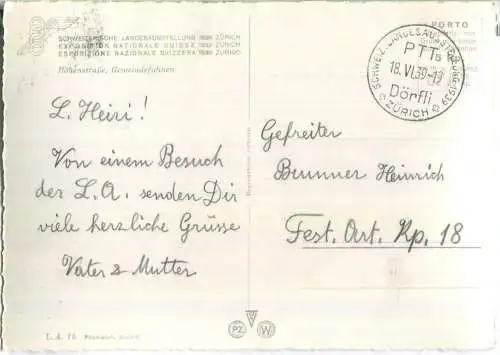 SCHWEIZERISCHE LANDESAUSSTELLUNG 1939 ZÜRICH
EXPOSITION NATIONALE SUISSE 1939 ZÜRICH
ESPOSIZIONE NAZIONALE SVIZZERA 1939 ZURIGO
Höhenstraße, Gemeindefahnen
PORTO
SCHWEIZ. LANDESAUSSTELLUNG 1939
PTT
18.VI.39-19
Dörfli
ZÜRICH
L. Heiri!
Von einem Besuch
der L.A. senden Dir
viele herzliche Grüsse
Vater & Mutter
Gefreiter
Brunner Heinrich
Fest. Art. Kp. 18
L.A. 76
PZ W